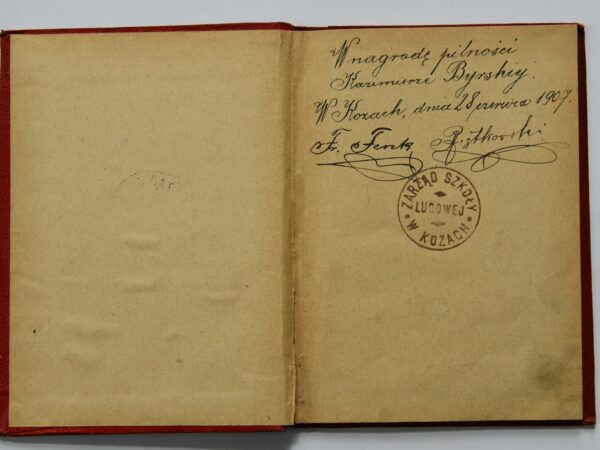 W nagrodę pilności
Kazimierze Byrskiej.
W Kozach, dnia 28 czerwca 1907.
Fr. Fenk
ZARZĄD SZKOŁY
LUDOWEJ
W KOZACH